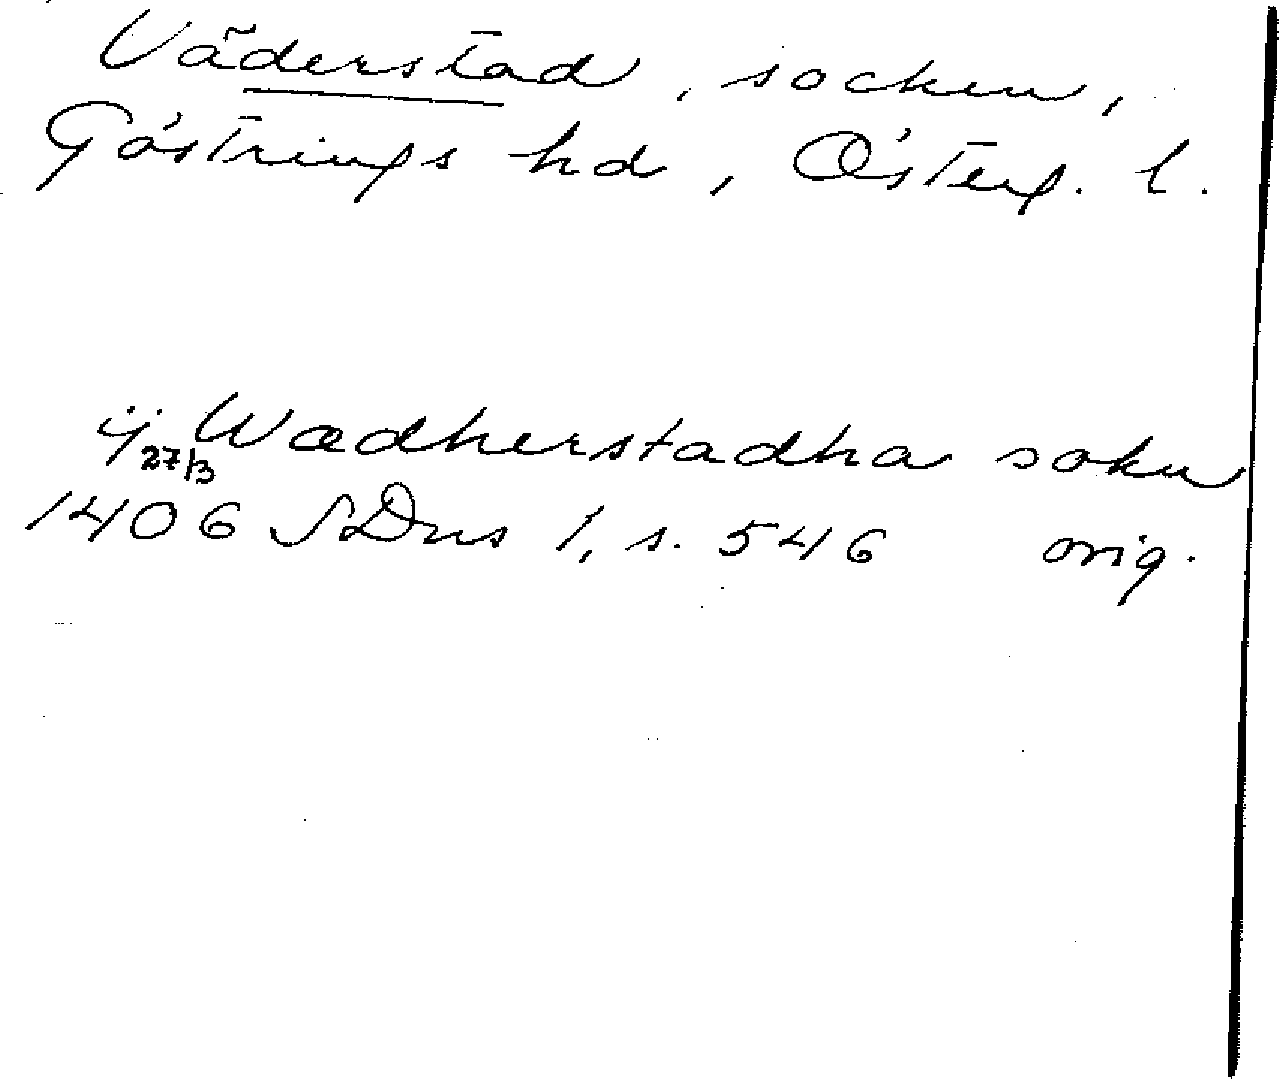 Väderstad, socken,
Göstrings hd, Österg. l.
ij Wædherstadha sokn
27/3
1406 SDns 1, s. 546 orig.